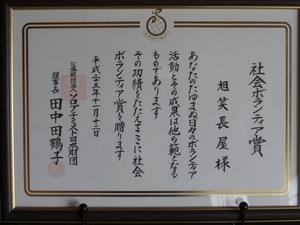 社会ボランティア賞
旭笑長屋 様
あなたのたゆまぬ日々のボランティア
活動とその成果は他の範となる
ものであります
その功績をたたえここに社会
ボランティア賞を贈ります
平成二十五年十一月十二日
公益財団法人ソロプチミスト日本財団
理事長 田中田鶴子